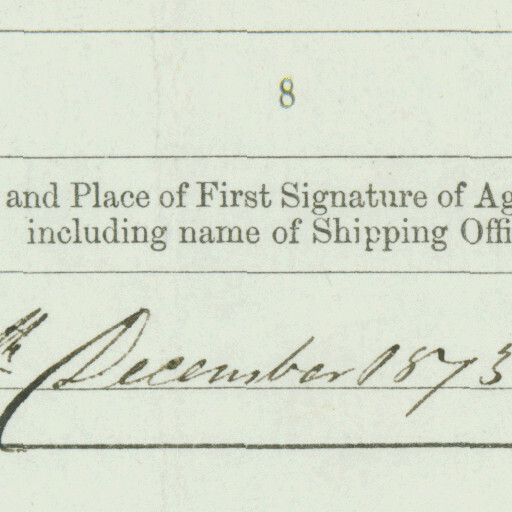 8
and Place of First Signature of Ag
including name of Shipping Offi
th December 1873